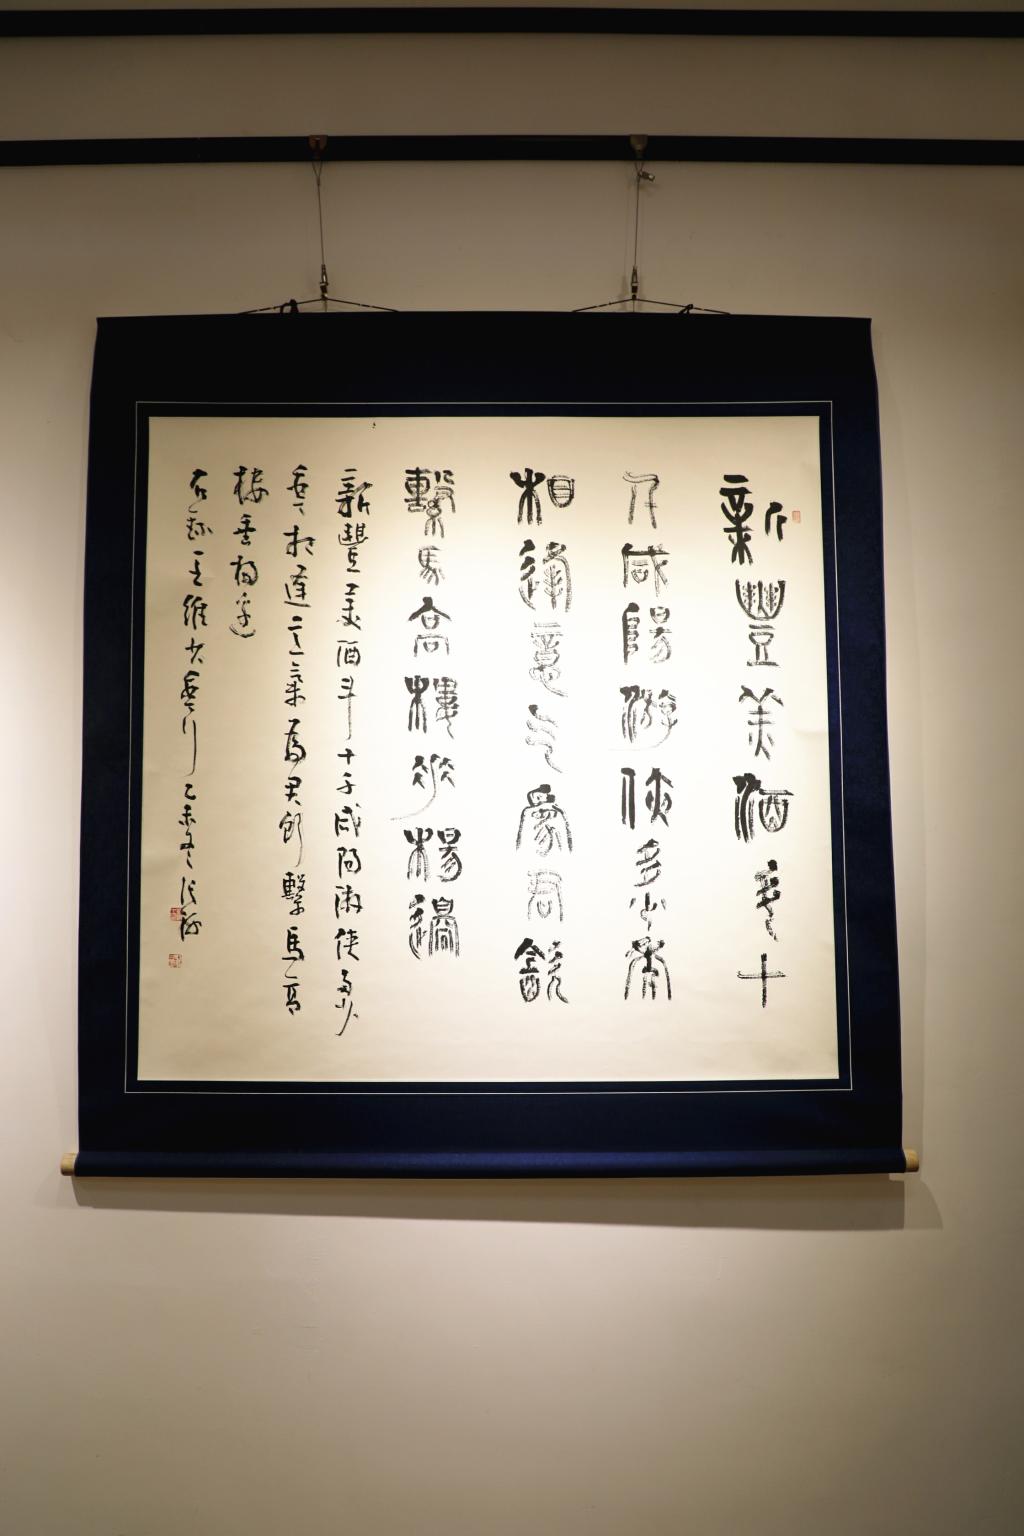 新豐美酒斗十
千咸陽游俠多少年
相逢意气為君飲
繫馬高樓垂楊邊
新豐美酒斗十千咸陽游俠多少
年相逢意氣為君飲繫馬高
樓垂楊邊
右錄王維少年行乙未冬